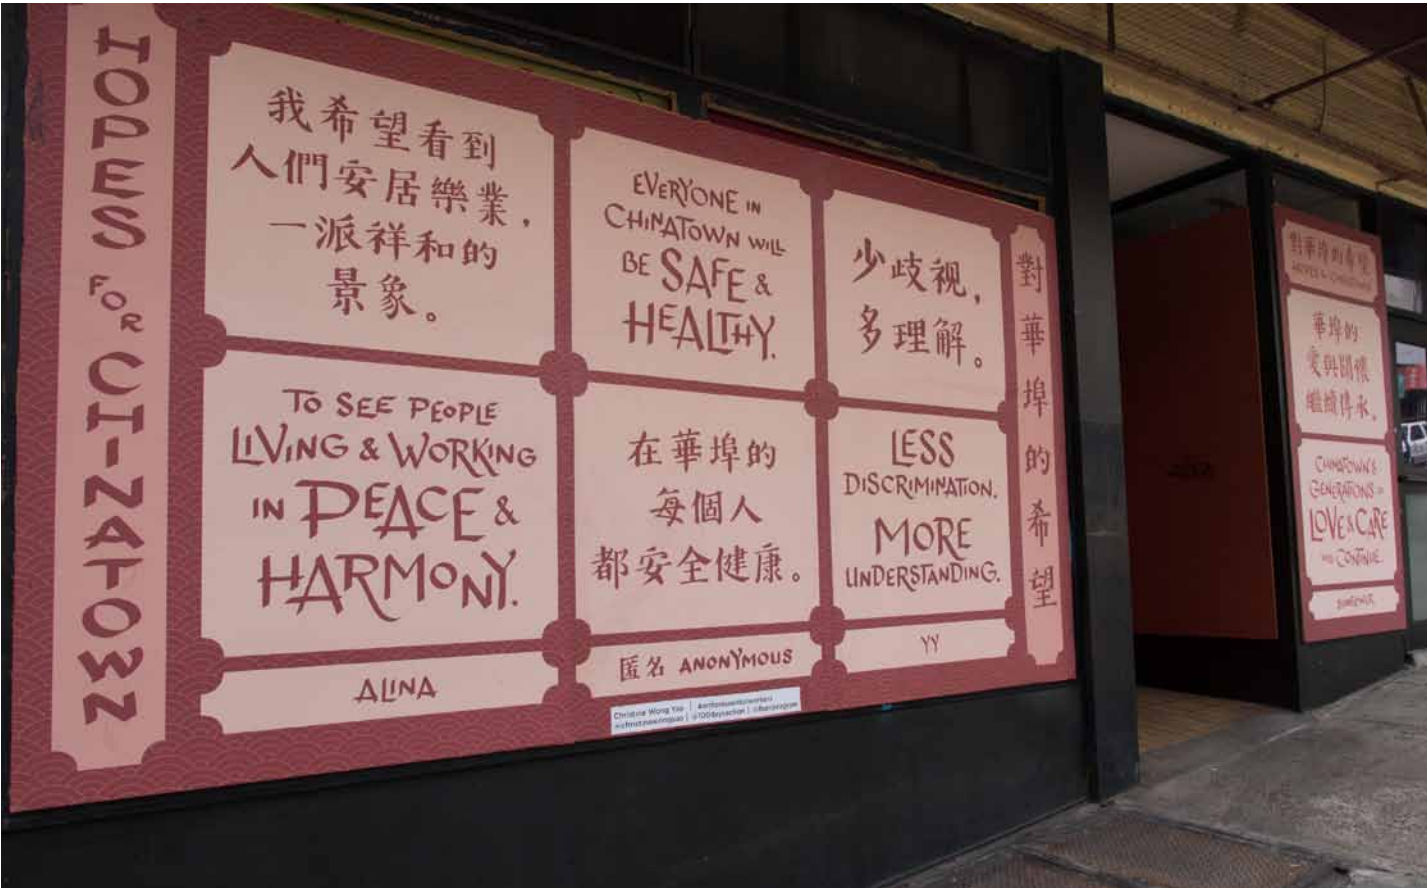 HOPES FOR CHINATOWN
我希望看到
人們安居樂業，
一派祥和的
景象。
TO SEE PEOPLE
LIVING & WORKING
IN PEACE &
HARMONY.
ALINA
EVERYONE IN
CHINATOWN WILL
BE SAFE &
HEALTHY.
在華埠的
每個人
都安全健康。
匿名 ANONYMOUS
少歧视，
多理解。
LESS
DISCRIMINATION.
MORE
UNDERSTANDING.
YY
對華埠的希望
Christine Wong Yap
對華埠的希望
HOPES for CHINATOWN
華埠的
愛與關懷
繼續傳承。
CHINATOWN'S
GENERATIONS of
LOVE & CARE
CONTINUE.